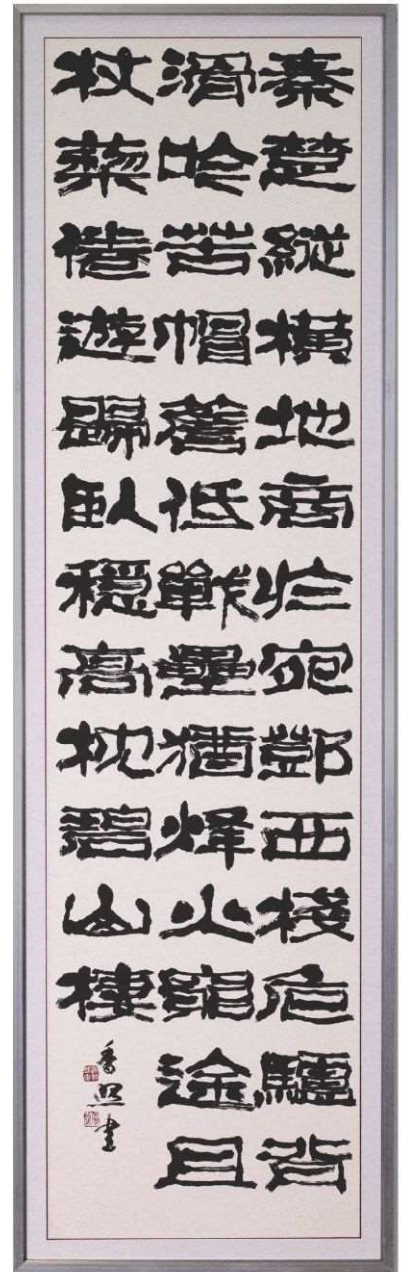 秦楚縱橫地商於宛鄧西棧危驢背
滑吟苦帽簷低戰壘猶烽火窮途且
杖藜倦遊歸臥穩高枕碧山棲
照書